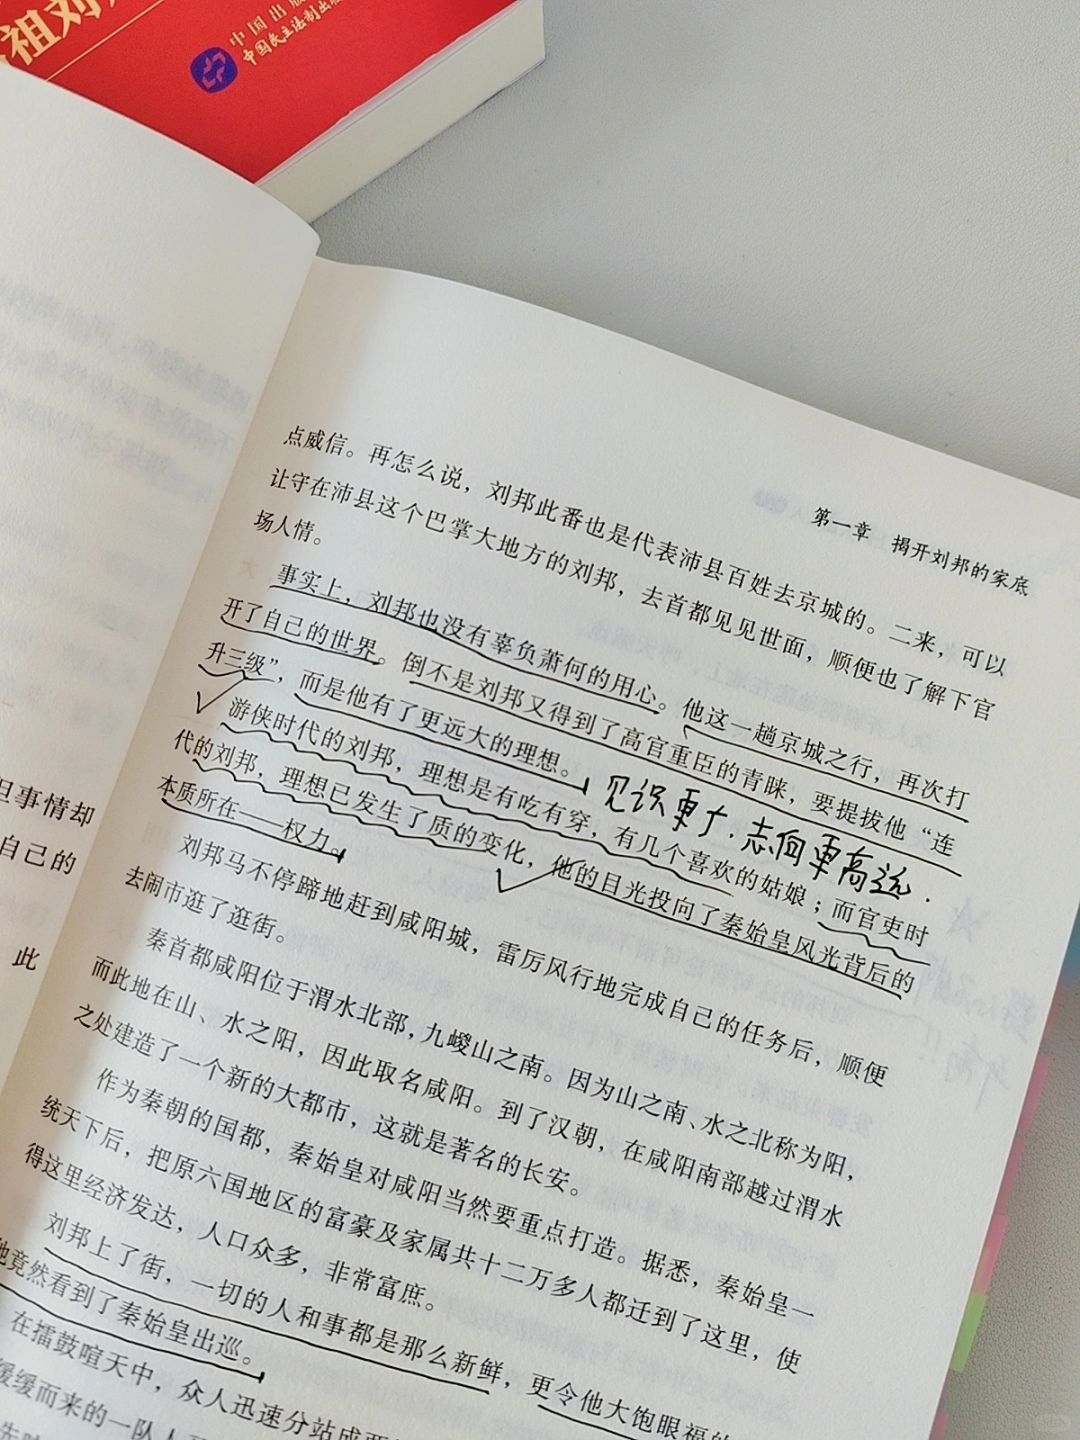 祖刘
中国出版
中国民主法制出版
第一章 揭开刘邦的家底
点威信。再怎么说，刘邦此番也是代表沛县百姓去京城的。二来，可以
让守在沛县这个巴掌大地方的刘邦，去首都见见世面，顺便也了解下官
场人情。
事实上，刘邦也没有辜负萧何的用心。他这一趟京城之行，再次打
开了自己的世界。倒不是刘邦又得到了高官重臣的青睐，要提拔他“连
升三级”，而是他有了更远大的理想。
见识更广，志向更高远．
游侠时代的刘邦，理想是有吃有穿，有几个喜欢的姑娘；而官吏时
代的刘邦，理想已发生了质的变化，他的目光投向了秦始皇风光背后的
本质所在——权力。
刘邦马不停蹄地赶到咸阳城，雷厉风行地完成自己的任务后，顺便
去闹市逛了逛街。
秦首都咸阳位于渭水北部，九嵕山之南。因为山之南、水之北称为阳，
而此地在山、水之阳，因此取名咸阳。到了汉朝，在咸阳南部越过渭水
之处建造了一个新的大都市，这就是著名的长安。
作为秦朝的国都，秦始皇对咸阳当然要重点打造。据悉，秦始皇一
统天下后，把原六国地区的富豪及家属共十二万多人都迁到了这里，使
得这里经济发达，人口众多，非常富庶。
刘邦上了街，一切的人和事都是那么新鲜，更令他大饱眼福的
他竟然看到了秦始皇出巡。
在擂鼓喧天中，众人迅速分站成两
缓缓而来的一队人
但事情却
自己的
此